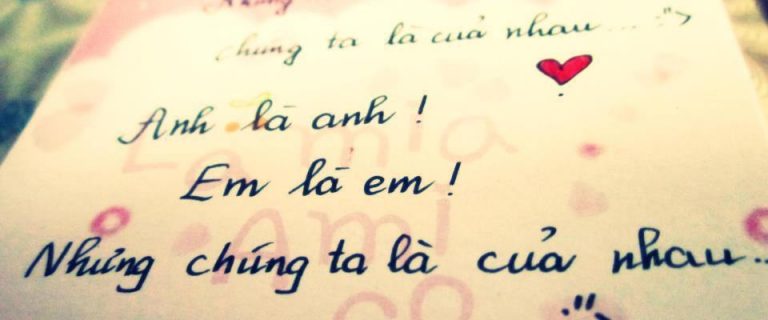 Nhưng
chúng ta là của nhau...
Anh là anh !
Em là em !
Nhưng chúng ta là của nhau...
La mia
Ami